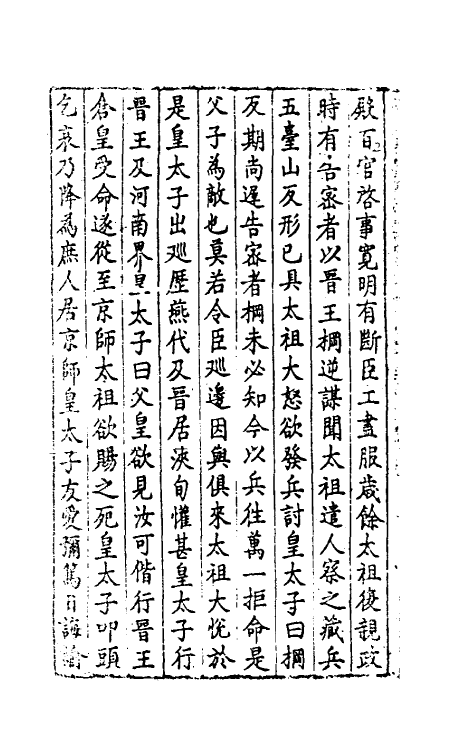 殿百官啓事寛明有斷臣工盡服歲餘太祖復親政
時有告密者以晋王棡逆謀聞太祖遣人察之藏兵
五臺山反形已具太祖大怒欲發兵討皇太子曰棡
反期尚遲告密者棡未必知今以兵往萬一拒命是
父子為敵也莫若令臣廵邊因與俱來太祖大悅於
是皇太子出廵歷燕代及晋居浹旬懽甚皇太子行
晋王及河南界皇太子曰父皇欲見汝可偕行晋王
倉皇受命遂從至京師太祖欲賜之死皇太子叩頭
乞哀乃降為庶人居京師皇太子友愛彌篤百誨諭